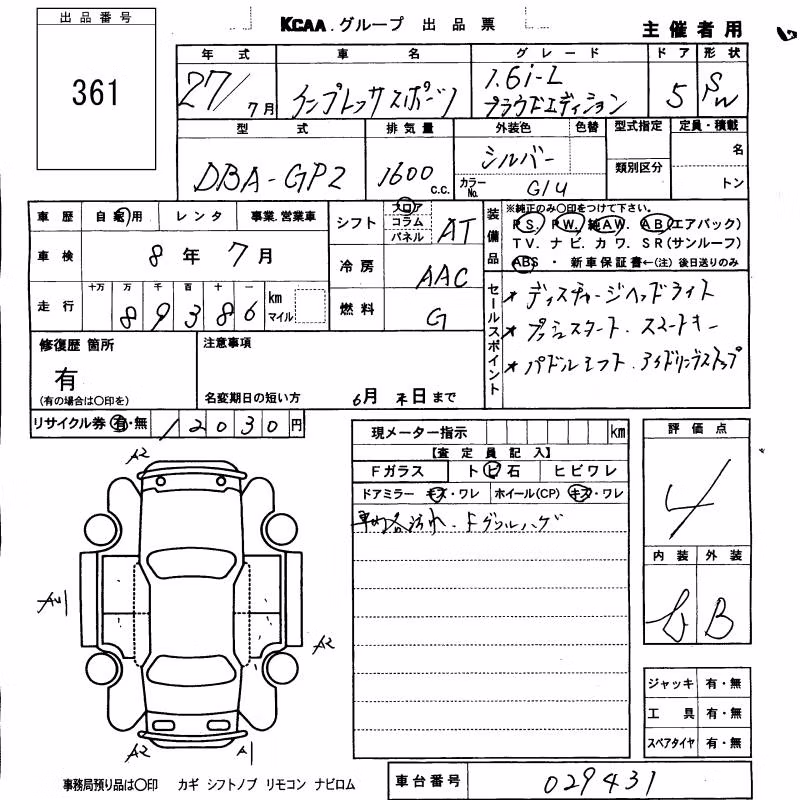 出品番号
361
KCAA.グループ 出品票
主催者用
年式 車名 グレード ドア 形状
27/7月 インプレッサスポーツ 1.6i-L プラウドエディション 5 SW
型式 排気量 外装色 色替 型式指定 定員・積載
DBA-GP2 1600c.c. シルバー 名
カラーNo. G1U 類別区分 トン
車歴 自家用 レンタ 事業.営業車
シフト フロア コラム パネル AT
装備品 ※純正のみ○印をつけて下さい。
PS. PW. 純AW. AB(エアバック)
TV. ナビ. カワ. SR(サンルーフ)
ABS ・ 新車保証書←(注) 後日送りのみ
車検 8年7月
冷房 AAC
走行 十万 万 千 百 十 一
89386 km マイル
燃料 G
セールスポイント
* ディスチャージヘッドライト
* プッシュスタート.スマートキー
* パドルシフト.アイドリングストップ
修復歴 箇所
有
(有の場合は○印を)
注意事項
名変期日の短い方 6月末日まで
リサイクル券 有・無 12030円
現メーター指示 km
【査定員記入】
Fガラス トビ石 ヒビワレ
ドアミラー キズ・ワレ ホイール(CP) キズ・ワレ
車内汚れ.Fグリルハゲ
評価点
4
内装 外装
B
A2
A2
A2
A1
ジャッキ 有・無
工具 有・無
スペアタイヤ 有・無
事務局預り品は○印 カギ シフトノブ リモコン ナビロム
車台番号 029431